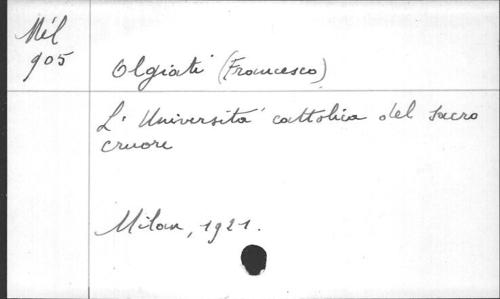 Mél
905
Olgiati (Francesco)
L'Università cattolica del sacro
cruore
Milan, 1921.